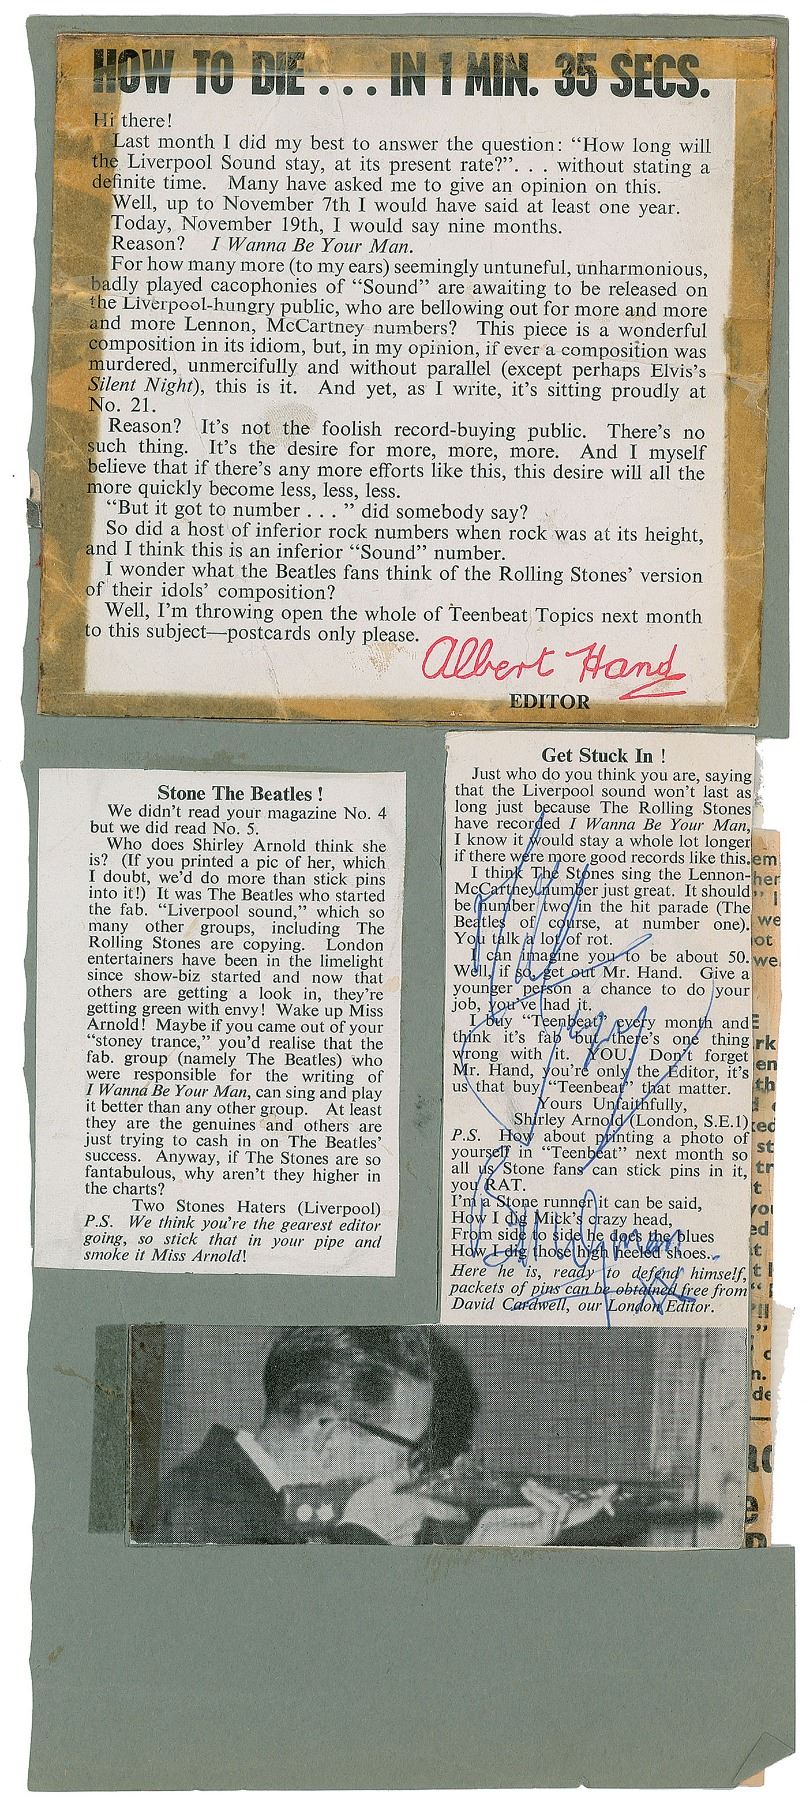 HOW TO DIE . . . IN 1 MIN. 35 SECS.
Hi there!
Last month I did my best to answer the question: “How long will
the Liverpool Sound stay, at its present rate?”. . . without stating a
definite time. Many have asked me to give an opinion on this.
Well, up to November 7th I would have said at least one year.
Today, November 19th, I would say nine months.
Reason? I Wanna Be Your Man.
For how many more (to my ears) seemingly untuneful, unharmonious,
badly played cacophonies of “Sound” are awaiting to be released on
the Liverpool-hungry public, who are bellowing out for more and more
and more Lennon, McCartney numbers? This piece is a wonderful
composition in its idiom, but, in my opinion, if ever a composition was
murdered, unmercifully and without parallel (except perhaps Elvis’s
Silent Night), this is it. And yet, as I write, it’s sitting proudly at
No. 21.
Reason? It’s not the foolish record-buying public. There’s no
such thing. It’s the desire for more, more, more. And I myself
believe that if there’s any more efforts like this, this desire will all the
more quickly become less, less, less.
“But it got to number . . . ” did somebody say?
So did a host of inferior rock numbers when rock was at its height,
and I think this is an inferior “Sound” number.
I wonder what the Beatles fans think of the Rolling Stones’ version
of their idols’ composition?
Well, I’m throwing open the whole of Teenbeat Topics next month
to this subject—postcards only please.
Albert Hand
EDITOR
Stone The Beatles !
We didn’t read your magazine No. 4
but we did read No. 5.
Who does Shirley Arnold think she
is? (If you printed a pic of her, which
I doubt, we’d do more than stick pins
into it!) It was The Beatles who started
the fab. “Liverpool sound,” which so
many other groups, including The
Rolling Stones are copying. London
entertainers have been in the limelight
since show-biz started and now that
others are getting a look in, they’re
getting green with envy! Wake up Miss
Arnold! Maybe if you came out of your
“stoney trance,” you’d realise that the
fab. group (namely The Beatles) who
were responsible for the writing of
I Wanna Be Your Man, can sing and play
it better than any other group. At least
they are the genuines and others are
just trying to cash in on The Beatles’
success. Anyway, if The Stones are so
fantabulous, why aren’t they higher in
the charts?
Two Stones Haters (Liverpool)
P.S. We think you’re the gearest editor
going, so stick that in your pipe and
smoke it Miss Arnold!
Get Stuck In !
Just who do you think you are, saying
that the Liverpool sound won’t last as
long just because The Rolling Stones
have recorded I Wanna Be Your Man,
I know it would stay a whole lot longer
if there were more good records like this.
I think The Stones sing the Lennon-
McCartney number just great. It should
be number two in the hit parade (The
Beatles of course, at number one).
You talk a lot of rot.
I can imagine you to be about 50.
Well, if so, get out Mr. Hand. Give a
younger person a chance to do your
job, you’ve had it.
I buy “Teenbeat” every month and
think it’s fab but there’s one thing
wrong with it. YOU. Don’t forget
Mr. Hand, you’re only the Editor, it’s
us that buy “Teenbeat” that matter.
Yours Unfaithfully,
Shirley Arnold (London, S.E.1)
P.S. How about printing a photo of
yourself in “Teenbeat” next month so
all us Stone fans can stick pins in it,
you RAT.
I’m a Stone runner it can be said,
How I dig Mick’s crazy head,
From side to side he does the blues
How I dig those high heeled shoes...
Here he is, ready to defend himself,
packets of pins can be obtained free from
David Cardwell, our London Editor.
Bill Wyman